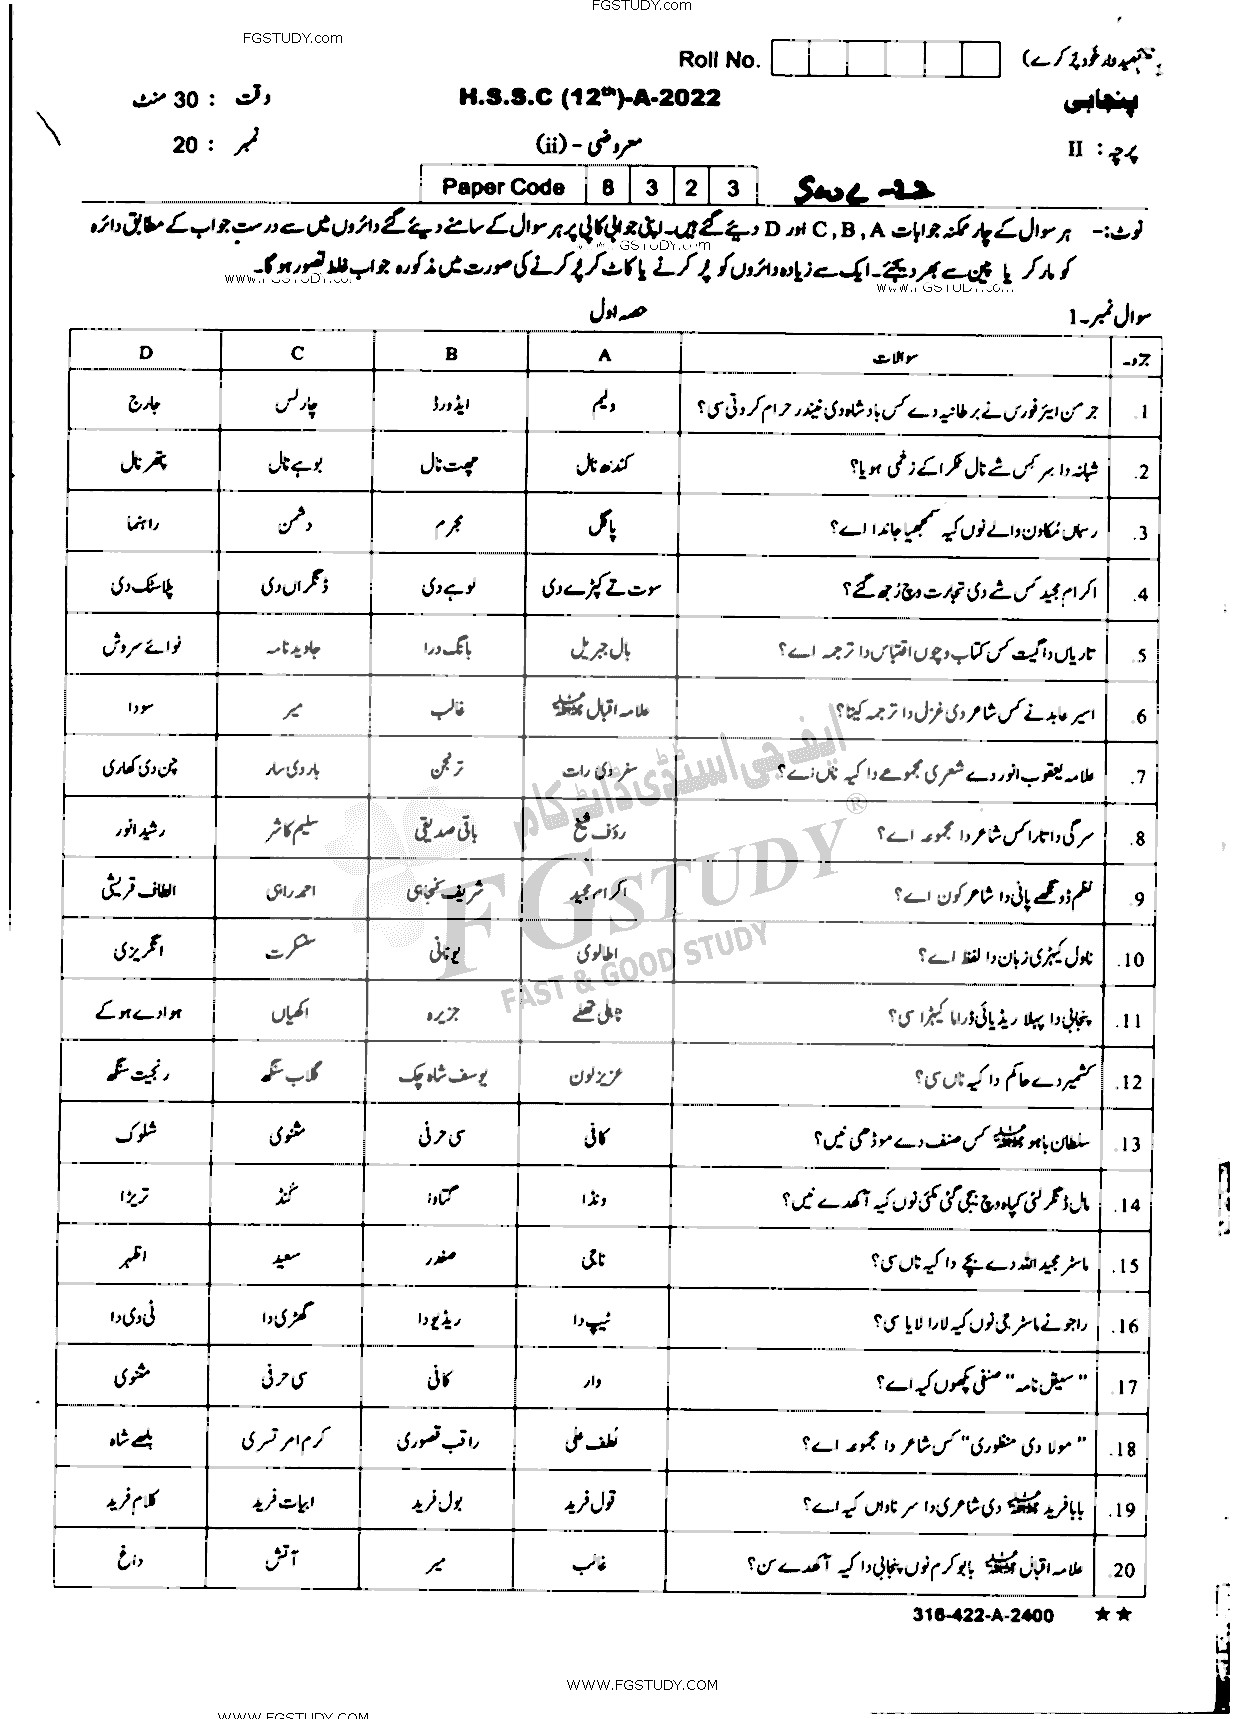 FGSTUDY.com
FGSTUDY.com
Roll No.
پنجابی H.S.S.C (12th)-A-2022 وقت : 30 منٹ
پرچہ : II معروضی - (ii) نمبر : 20
Paper Code 8 3 2 3
نوٹ:- ہر سوال کے چار ممکنہ جوابات A ، B ، C اور D دیئے گئے ہیں۔ اپنی جوابی کاپی پر ہر سوال کے سامنے دیئے گئے دائروں میں سے درست جواب کے مطابق دائرہ
WWW.FGSTUDY.com
کو مارکر یا پین سے بھر دیجئے۔ ایک سے زیادہ دائروں کو پُر کرنے یا کاٹ کر پُر کرنے کی صورت میں مذکورہ جواب غلط تصور ہوگا۔
WWW.FGSTUDY.com
WWW.FGSTUDY.com
سوال نمبر۔1 حصہ اول
سوالات A B C D
1. جرمن ایئر فورس نے برطانیہ دے کس بادشاہ دی نیندر حرام کر دتی سی؟ ولیم ایڈورڈ چارلس جارج
2. شبانہ دا سر کس شے نال ٹکرا کے زخمی ہویا؟ کندھ نال چھت نال بوہے نال پتھر نال
3. رسماں مُکاون والے نوں کیہ سمجھیا جاندا اے؟ پاگل مجرم دشمن راہنما
4. اکرام مجید کس شے دی تجارت وچ رُجھ گئے؟ سوت تے کپڑے دی لوہے دی ڈنگراں دی پلاسٹک دی
5. تاریاں دا گیت کس کتاب وچوں اقتباس دا ترجمہ اے؟ بال جبریل بانگ درا جاوید نامہ نوائے سروش
6. اسیر عابد نے کس شاعر دی غزل دا ترجمہ کیتا؟ علامہ اقبالؒ غالب میر سودا
7. علامہ یعقوب انور دے شعری مجموعے دا کیہ ناں اے؟ سفر دی رات ترنجن بار دی سار چن دی کھاری
8. سرگی دا تارا کس شاعر دا مجموعہ اے؟ رؤف شیخ باقی صدیقی سلیم کاشر رشید انور
9. نظم ڈونگھے پانی دا شاعر کون اے؟ اکرام مجید شریف کنجاہی احمد راہی الطاف قریشی
10. ناول کیہڑی زبان دا لفظ اے؟ اطالوی یونانی سنسکرت انگریزی
11. پنجابی دا پہلا ریڈیائی ڈراما کیہڑا سی؟ ٹاہلی تھلے جزیرہ اکھیاں ہوادے ہوکے
12. کشمیر دے حاکم دا کیہ ناں سی؟ عزیز لون یوسف شاہ چک گلاب سنگھ رنجیت سنگھ
13. سلطان باہوؒ کس صنف دے موڈھی نیں؟ کافی سی حرفی مثنوی شلوک
14. مال ڈنگر لئی کپاہ وچ بیجی گئی مکئی نوں کیہ آکھدے نیں؟ ونڈا گتاوا گنڈ تریڑا
15. ماسٹر مجید اللہ دے بچے دا کیہ ناں سی؟ ناجی صفدر سعید اظہر
16. راجو نے ماسٹر جی نوں کیہ لارا لایا سی؟ ٹیپ دا ریڈیو دا گھڑی دا ٹی وی دا
17. "سیفل نامہ" صنفی پکھوں کیہ اے؟ وار کافی سی حرفی مثنوی
18. "مولا دی منظوری" کس شاعر دا مجموعہ اے؟ لطف علی راقب قصوری کرم امرتسری بلھے شاہ
19. بابا فریدؒ دی شاعری دا سرناواں کیہ اے؟ قول فرید بول فرید ابیات فرید کلام فرید
20. علامہ اقبالؒ بابو کرم نوں پنجابی دا کیہ آکھدے سن؟ غالب میر آتش داغ
316-422-A-2400 ★★
ایف جی اسٹڈی ڈاٹ کام
FGSTUDY ®
FAST & GOOD STUDY
WWW.FGSTUDY.COM
WWW.FGSTUDY.COM